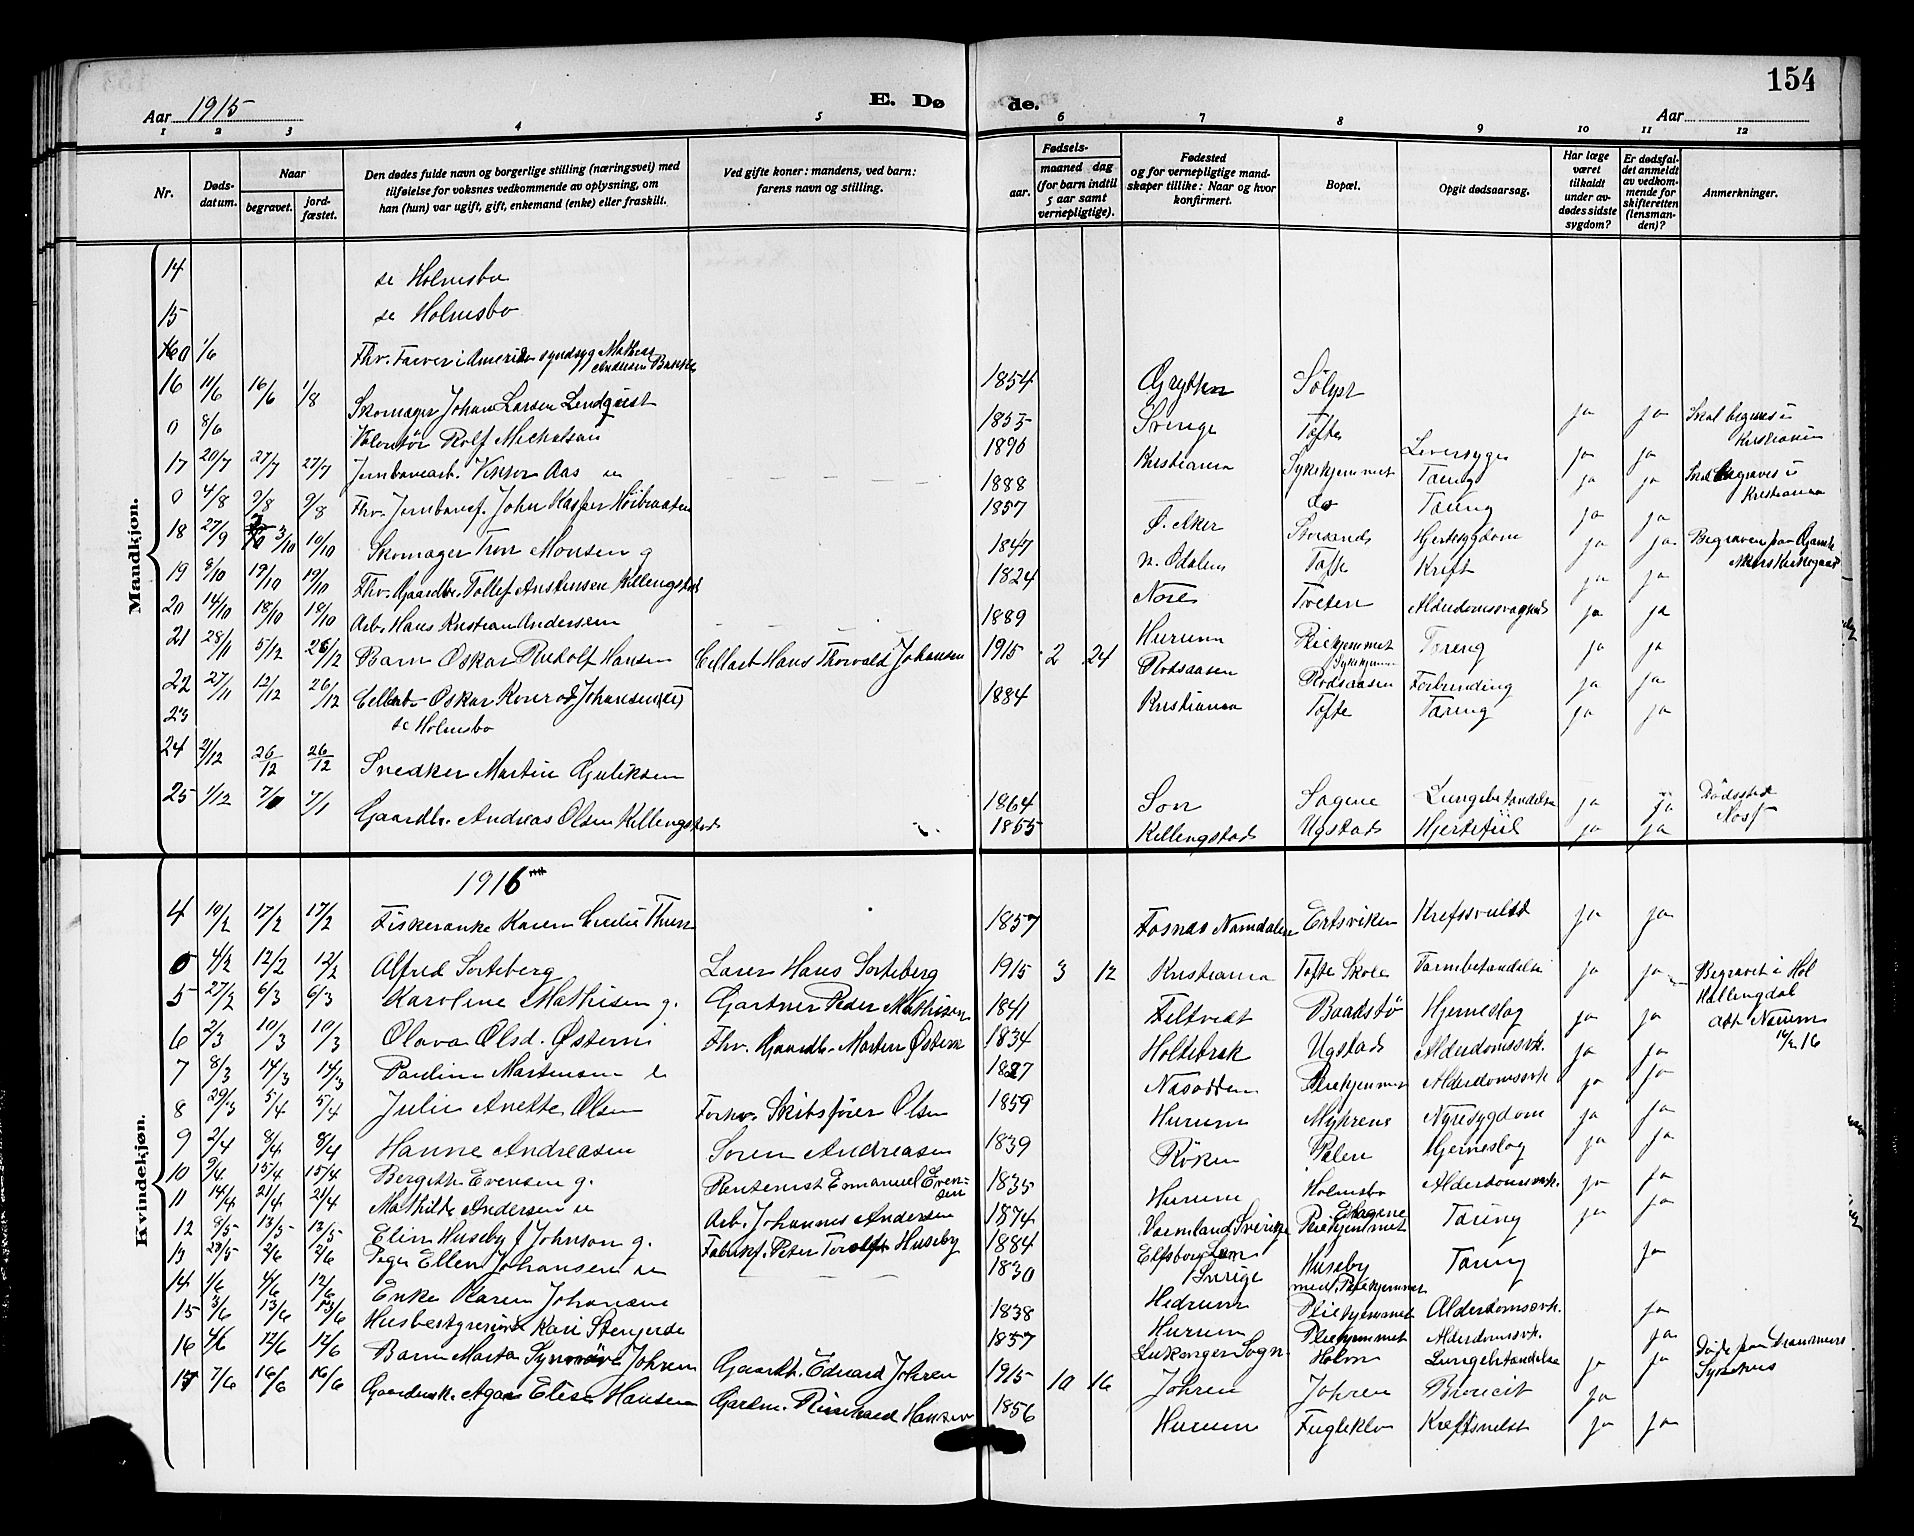 154
Aar 1915
E. Dø
de.
Aar
1 2 3 4 5 6 7 8 9 10 11 12
Nr.
Døds-
datum.
Naar
begravet.
jord-
fæstet.
Den dødes fulde navn og borgerlige stilling (næringsvei) med
tilføielse for voksnes vedkommende av oplysning, om
han (hun) var ugift, gift, enkemand (enke) eller fraskilt.
Ved gifte koner: mandens, ved barn:
farens navn og stilling.
Fødsels-
aar.
maaned dag
(for barn indtil
5 aar samt
vernepligtige).
Fødested
og for vernepligtige mand-
skaper tillike: Naar og hvor
konfirmert.
Bopæl.
Opgit dødsaarsag.
Har læge
været
tilkaldt
under av-
dødes sidste
sygdom?
Er dødsfal-
det anmeldt
av vedkom-
mende for
skifteretten
(lensman-
den)?
Anmerkninger.
Mandkjøn.
14 se Holmsbo
15 se Holmsbo
0 1/6 Fhv. Farver i Amerika syndsyg Mathias Andersen Bakke 1854 Grytten Sølyst
16 11/6 16/6 1/8 Skomager Johan Larsen Lendquist 1853 Sverige Tofte ja ja Skal begraves i
0 8/6 Volontør Rolf Michelsen 1890 Kristiania Sykehjemmet Leversyge ja ja Kristiania
17 20/7 27/7 27/7 Jernbanearb. Viktor Aas u 1888 do Tæring ja ja Skal begraves i
0 4/8 9/8 9/8 Fhv. Jernbanef. John Kasper Høibraaten 1857 Ø. Aker Storsand Tæring ja ja Kristiania
18 27/9 3/10 10/10 Skomager Tron Monsen g 1847 N. Odalen Tofte Hjertesygdom ja ja Begraven paa Gamle
19 8/10 19/10 19/10 Fhv. Gaardbr. Tollef Anstensen Killengstad 1824 Nore Tveten Kreft ja ja Akers Kirkegaard
20 14/10 18/10 19/10 Arb. Hans Kristian Andersen 1889 Hurum Pleiehjemmet Alderdomssvaghed ja ja
21 28/11 5/12 26/12 Barn Oskar Rudolf Hansen Cellarb Hans Thorvald Johansen 1915 2 24 Rødsaasen Sykehjem Rødsaasen Tæring ja ja
22 27/11 12/12 26/12 Cellarb Oskar Konrad Johansen 1884 Kristiania Tofte Forbrænding ja ja
23 se Holmsbo Tæring ja ja
24 2/12 26/12 26/12 Snedker Martin Guliksen 1864 Son Sagene Lungebetændelse ja ja Dødssted
25 1/12 7/1 7/1 Gaardbr. Andreas Olsen Killengstad 1855 Killengstad Ugstad Hjertefeil ja ja
Kvindekjøn.
1916
4 10/2 17/2 17/2 Fiskerenke Karen Cecilie Thun 1857 Fosnæs Namdalen Ertsviken Kreftsvulst ja ja
0 4/2 12/2 12/2 Alfred Sorteberg Lærer Hans Sorteberg 1915 3 12 Kristiania Tofte Skole Tarmbetændelse ja ja Begravet i Hol
5 27/2 6/3 6/3 Karoline Mathisen g. Gartner Peder Mathisen 1841 Feltvedt Baadstø Hjerneslag ja ja Hallingdal
6 2/3 10/3 10/3 Olava Olsd. Østern Fhv. Gaardbr. Morten Østern 1834 Holtebræk Ugstad Alderdomssvk. ja ja 16/2 16
7 8/3 14/3 14/3 Pauline Martensen e 1827 Næsodden Pleiehjemmet Alderdomssvk ja ja
8 29/3 5/4 5/4 Julie Anette Olsen Forhv. Skibsfører Olsen 1859 Hurum Myhrene Nyresygdom ja ja
9 2/4 8/4 8/4 Hanne Andreasen Soren Andreasen 1839 Røken Hjerneslag ja ja
10 9/4 15/4 15/4 Bergitte Evensen g. Rentenist Emanuel Evensen 1835 Hurum Holmsbo Alderdomssvk. ja ja
11 14/4 21/4 21/4 Mathilde Andersen u Arb. Johannes Andersen 1874 Vermland Sverige Pleiehjemmet Tæring ja ja
12 8/5 13/5 13/5 Elin Huseby f Johnson g. Fabrikf. Peter Torolf Huseby 1884 Elfsborg Len Sverige Huseby Tæring ja
13 28/5 2/6 2/6 Pige Ellen Johansen u 1830 Hedrum med. Pleiehjemmet
14 1/6 4/6 12/6 Enke Maren Johansen 1838 Hurum Pleiehjemmet Alderdomssvk. ja
15 3/6 13/6 13/6 Husbestyrerinde Kari Stenjerde 1857 Leikanger Sogn Pleiehjemmet Alderdomsvk. ja Døde paa Drammens
16 4/6 12/6 12/6 Barn Marta Synnøve Johren Gaardbr. Edvard Johren 1915 10 16 Johren Holm Lungebetændelse ja ja Sykehus
17 7/6 16/6 16/6 Gaardmk. Agnes Elise Hansen Gardm. Rinehard Hansen 1856 Hurum Johren ja
Fugleklo Kreftsvulst ja ja